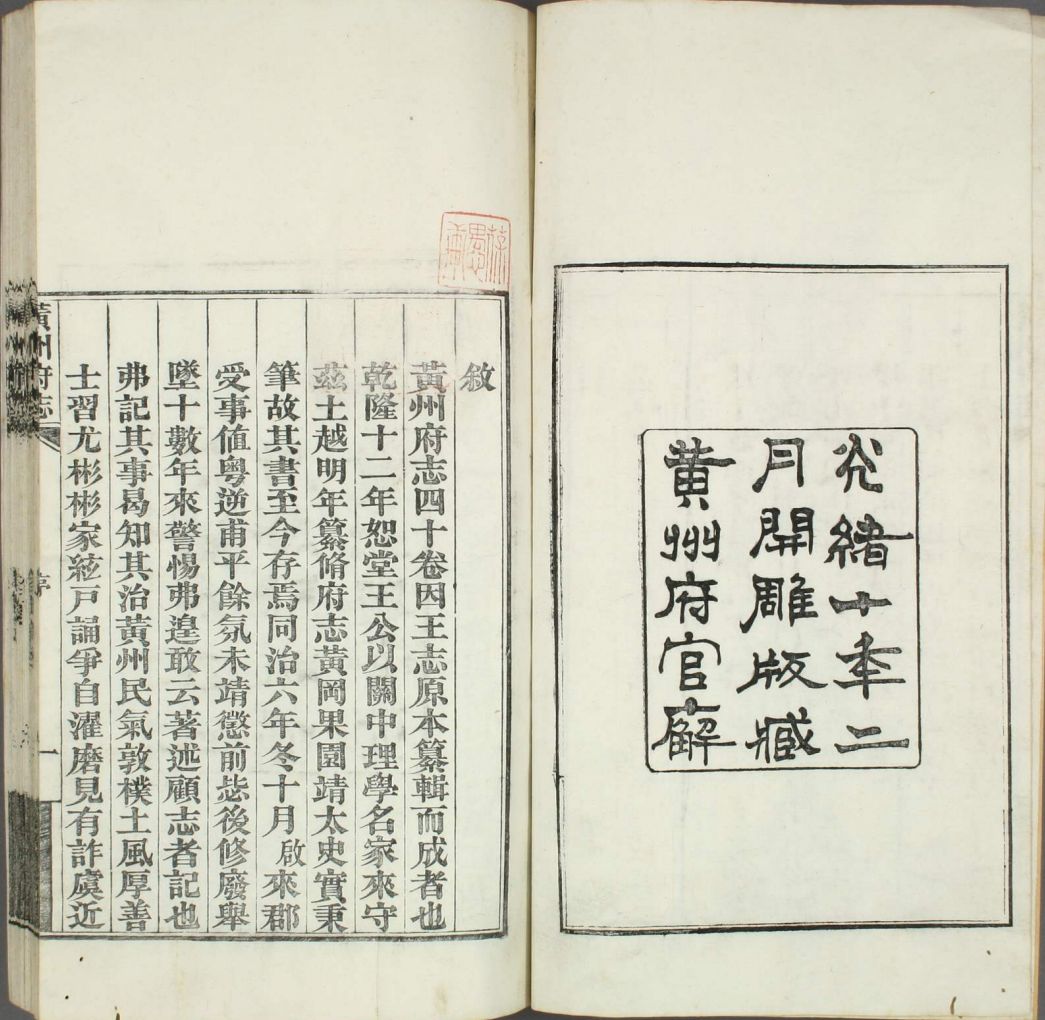 光緒十年二
月開雕版藏
黃州府官廨
敘
黃州府志四十卷因王志原本纂輯而成者也
乾隆十二年恕堂王公以關中理學名家來守
茲土越明年纂脩府志黃岡果園靖太史實秉
筆故其書至今存焉同治六年冬十月啟來郡
受事値粵逆甫平餘氛未靖懲前毖後修廢舉
墜十數年來警惕弗遑敢云著述顧志者記也
弗記其事曷知其治黃州民氣敦樸土風厚善
士習尤彬彬家絃戸誦爭自濯磨見有詐虞近
黃州府志
序
一